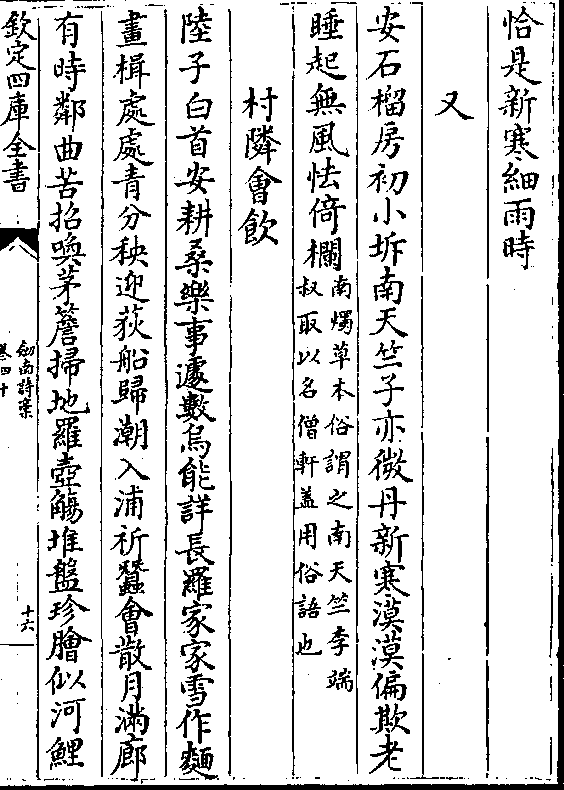 恰是新寒細雨時
又
安石榴房初小坼南天竺子亦微丹新寒漠漠偏欺老
睡起無風怯倚欄南燭草木俗謂之南天竺李端
叔取以名僧軒盖用俗語也
村隣㑹飲
陸子白首安耕桑樂事遽數烏能詳長羅家家雪作麵
畫楫處處青分秧迎荻船歸潮入浦祈蠶㑹散月滿廊
有時鄰曲苦招喚茅簷掃地羅壺觴堆盤珍膾似河鯉
欽定四庫全書
劒南詩稾
卷四十
十六